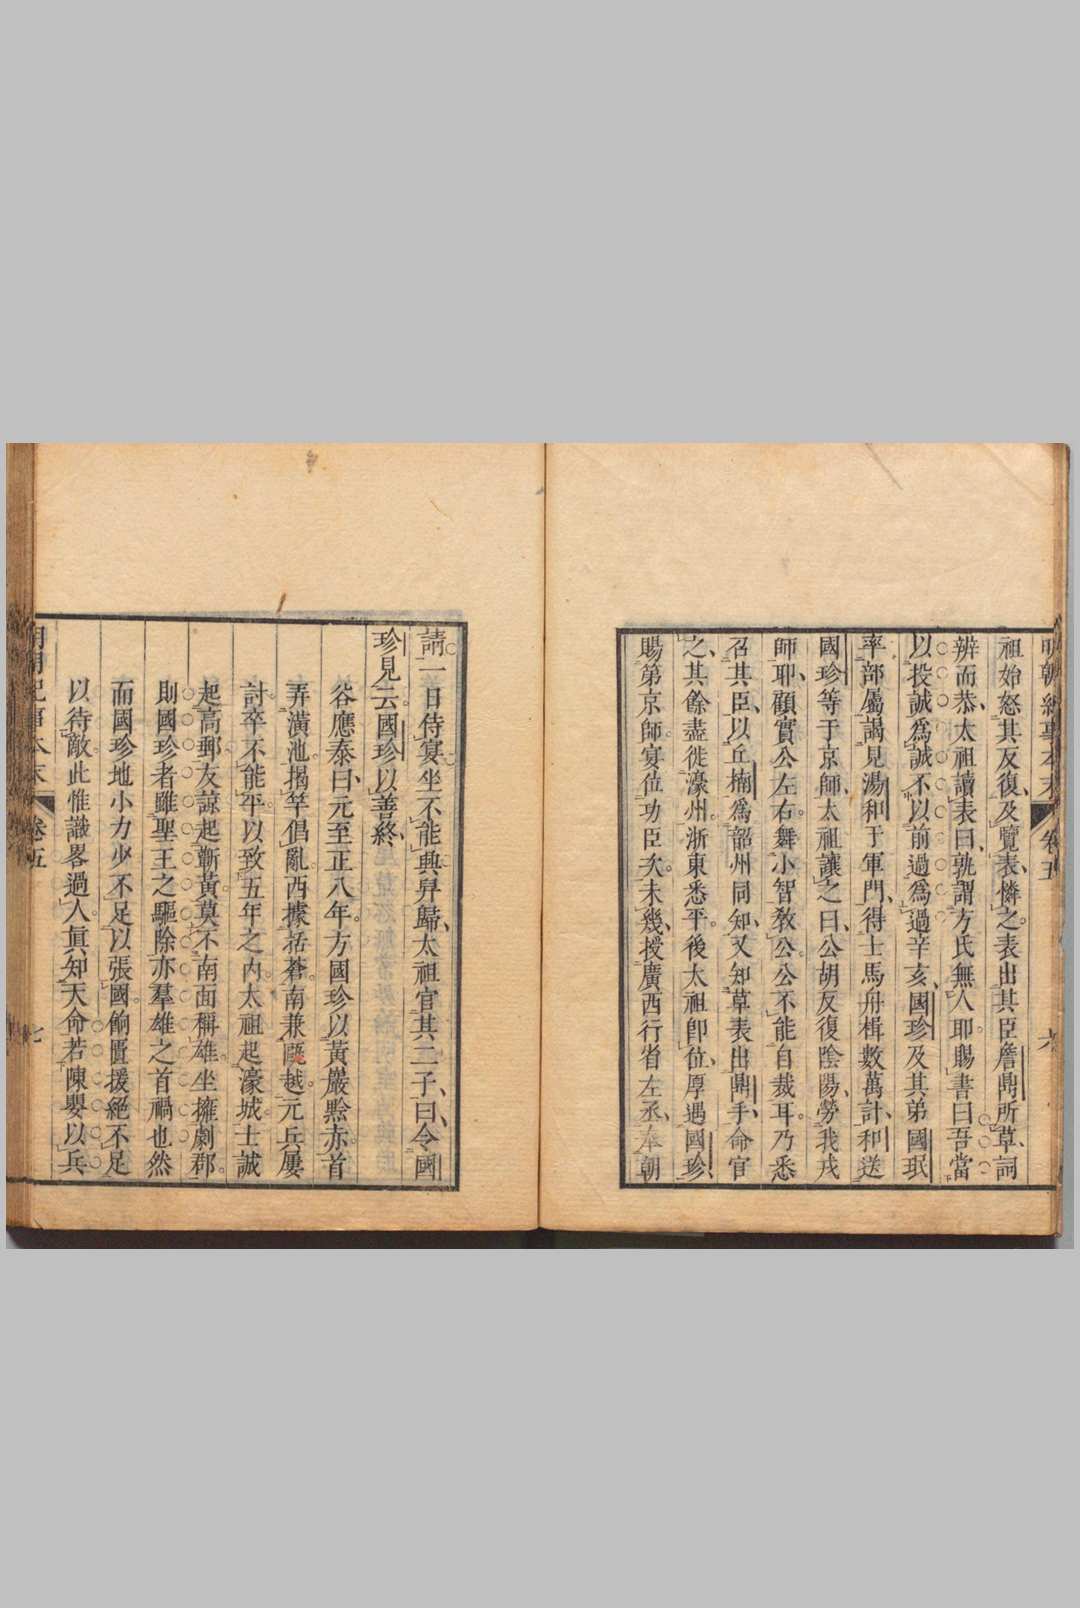 明朝紀事本末 卷五 六
祖始怒其反復及覽表憐之表出其臣詹鼎所草詞
辨而恭太祖讀表曰孰謂方氏無人耶賜書曰吾當
以投誠爲誠不以前過爲過辛亥國珍及其弟國珉
率部屬謁見湯和于軍門得士馬舟楫數萬計和送
國珍等于京師太祖讓之曰公胡反復陰陽勞我戎
師耶顧實公左右舞小智敎公公不能自裁耳乃悉
召其臣以丘楠爲韶州同知又知草表出鼎手命官
之其餘盡徙濠州浙東悉平後太祖卽位厚遇國珍
賜第京師宴位功臣次未幾授廣西行省左丞奉朝
請一日侍宴坐不能興舁歸太祖官其二子曰令國
珍見云國珍以善終
谷應泰曰元至正八年方國珍以黃巖黔赤首
弄潢池揭竿倡亂西據括蒼南兼甌越元兵屢
討卒不能平以致五年之內太祖起濠城士誠
起高郵友諒起蘄黃莫不南面稱雄坐擁劇郡
則國珍者雖聖王之驅除亦羣雄之首禍也然
而國珍地小力少不足以張國餉匱援絕不足
以待敵此惟識畧過人眞知天命若陳嬰以兵
明朝紀事本末 卷五 七